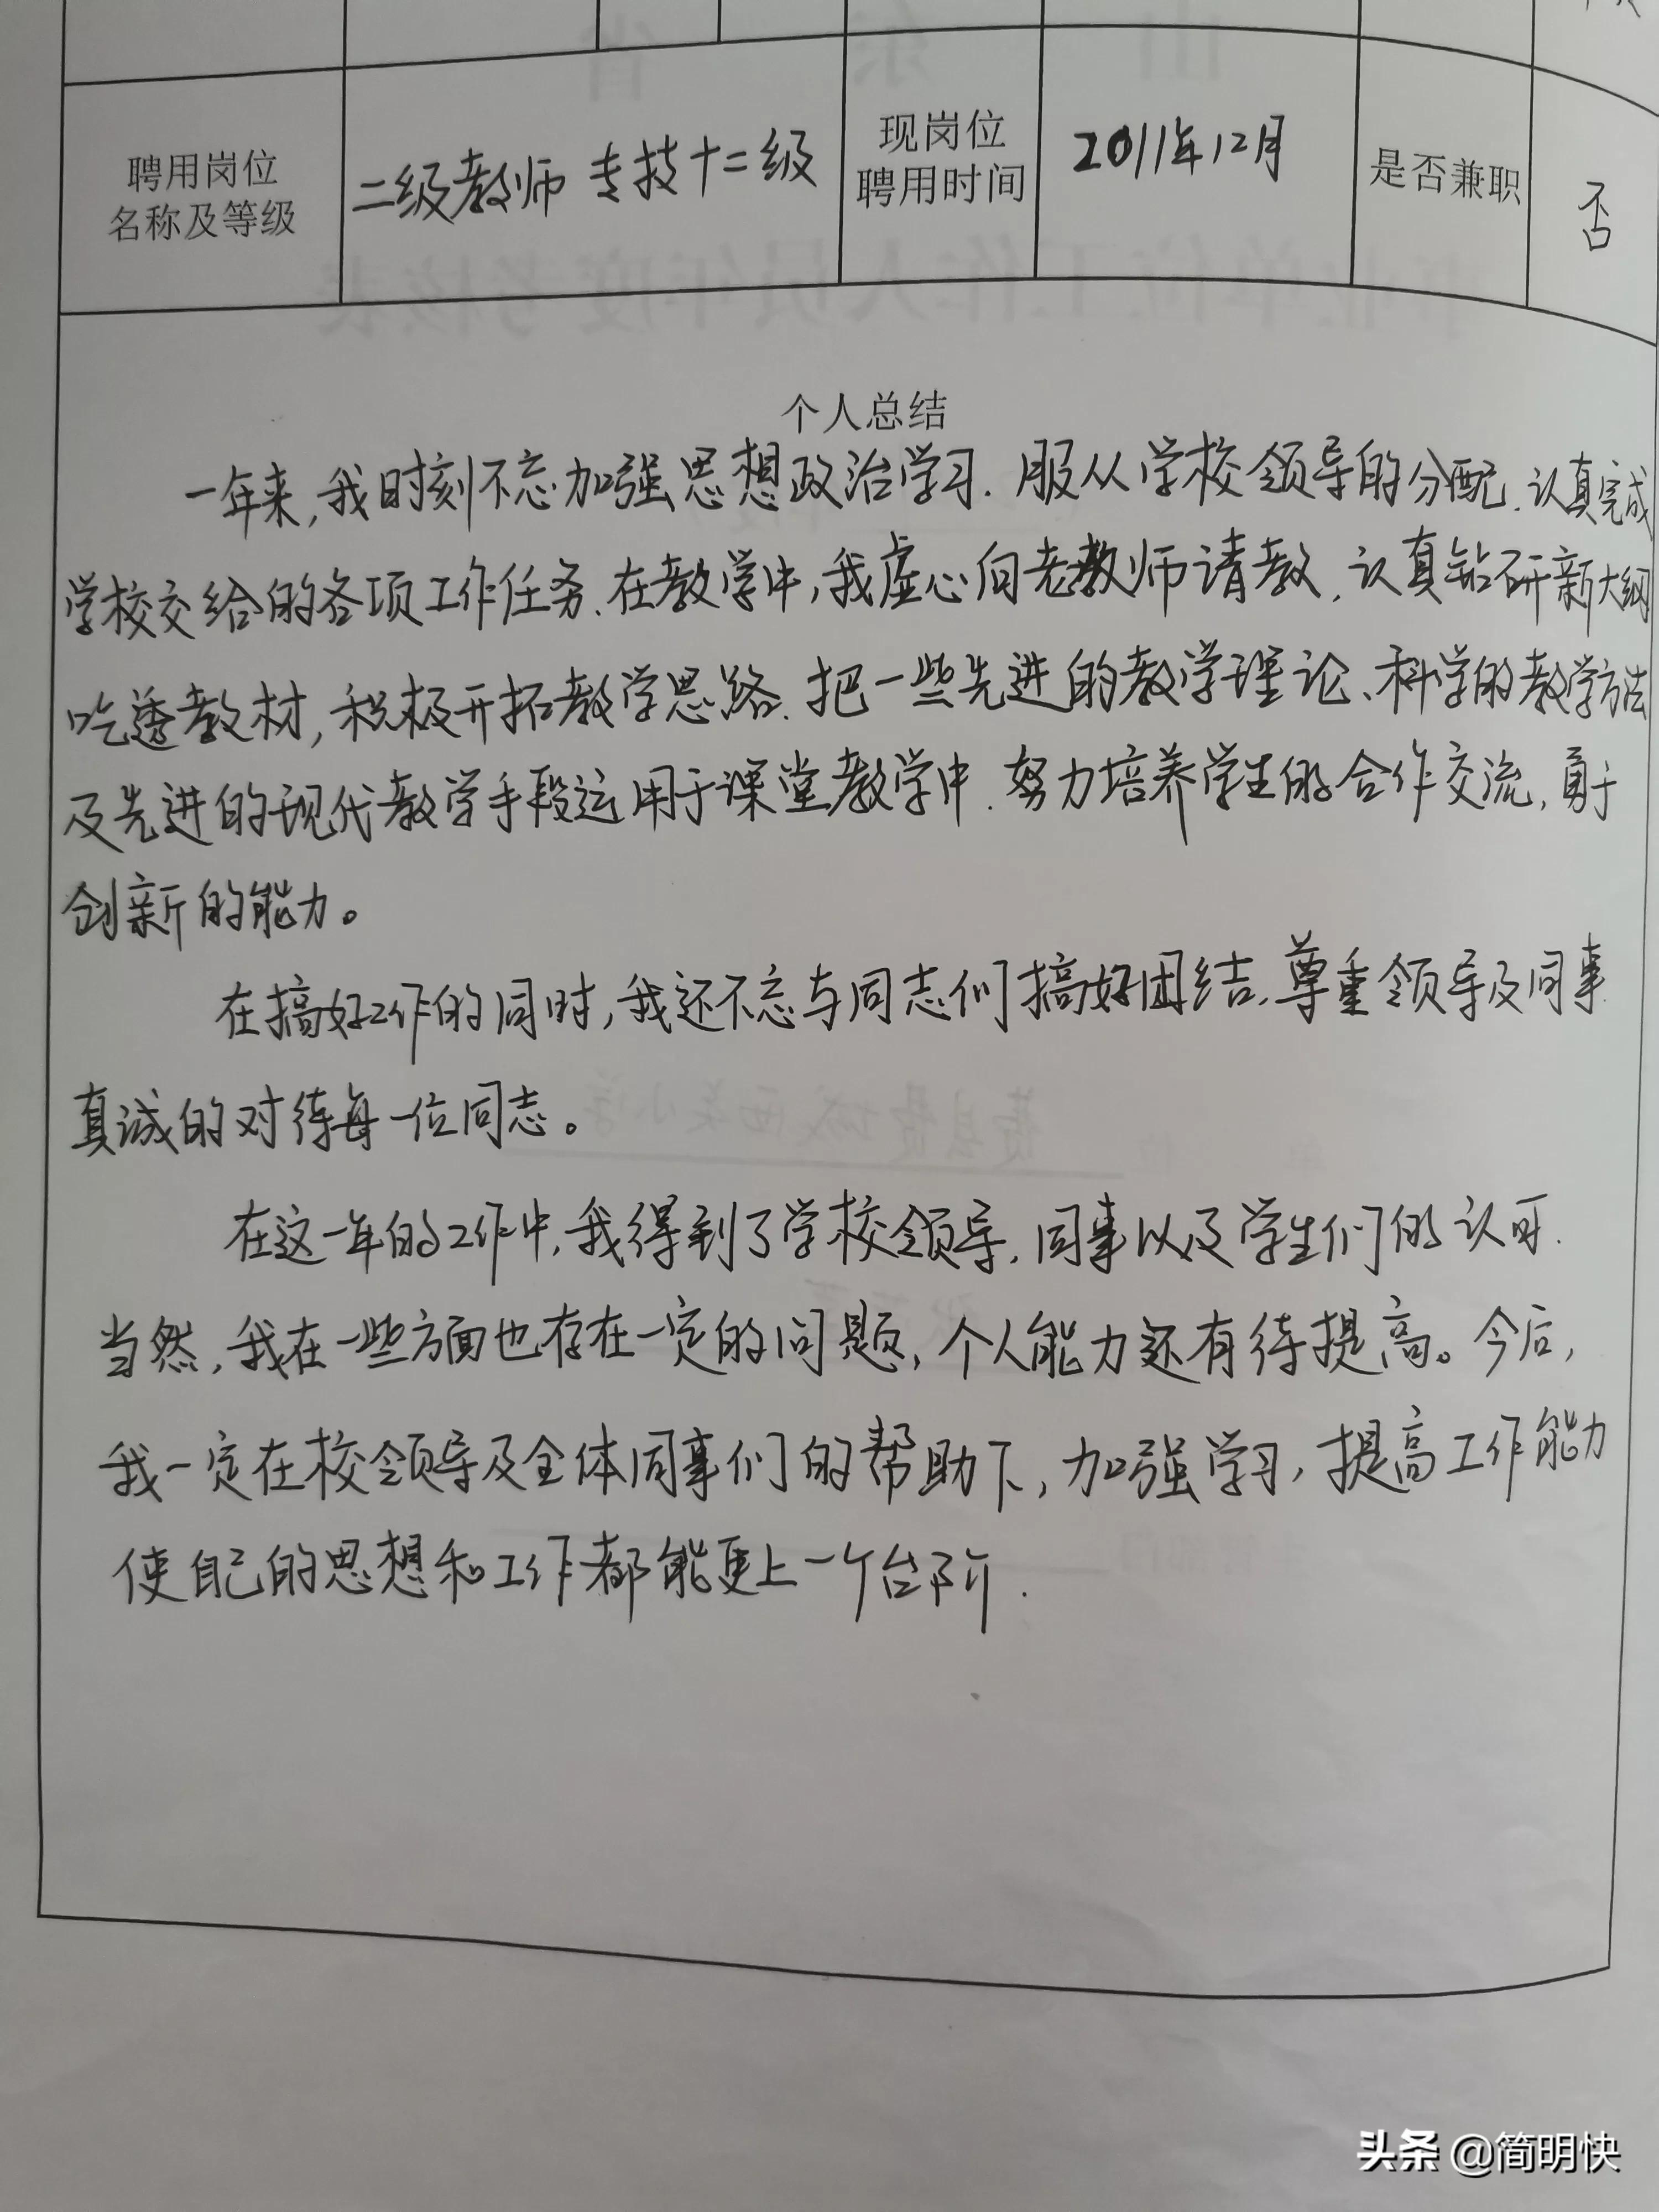 聘用岗位
名称及等级
二级教师 专技十二级
现岗位
聘用时间
2011年12月
是否兼职
否
个人总结
一年来,我时刻不忘加强思想政治学习.服从学校领导的分配.认真完成
学校交给的各项工作任务.在教学中,我虚心向老教师请教,认真钻研新大纲
吃透教材,积极开拓教学思路.把一些先进的教学理论、科学的教学方法
及先进的现代教学手段运用于课堂教学中.努力培养学生的合作交流,勇于
创新的能力。
在搞好工作的同时,我还不忘与同志们搞好团结,尊重领导及同事
真诚的对待每一位同志。
在这一年的工作中,我得到了学校领导,同事以及学生们的认可.
当然,我在一些方面也存在一定的问题,个人能力还有待提高。今后,
我一定在校领导及全体同事们的帮助下,加强学习,提高工作能力
使自己的思想和工作都能更上一个台阶.
头条 @简明快